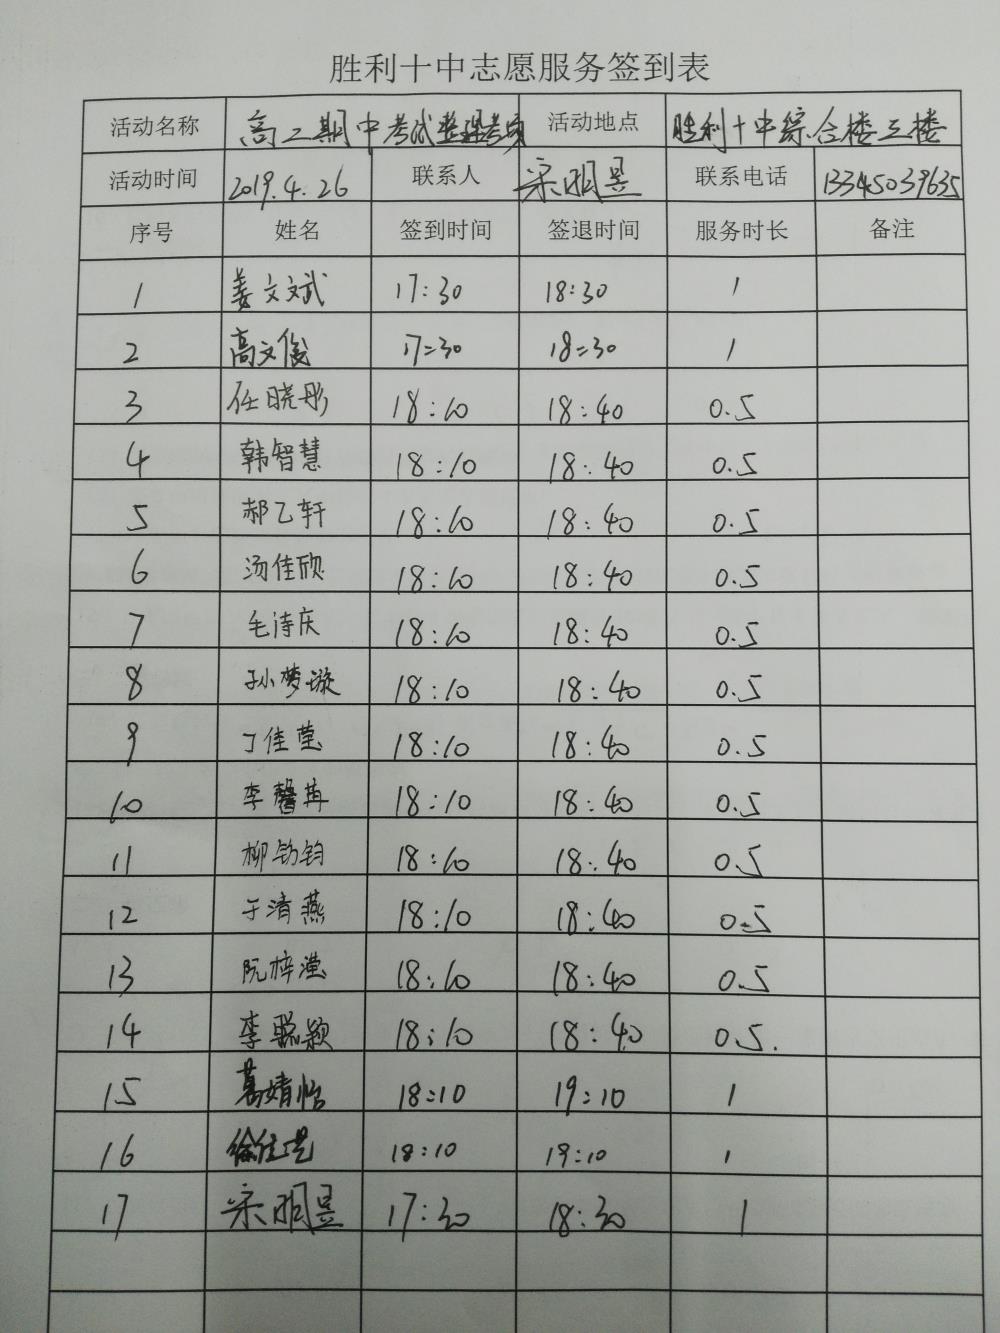 胜利十中志愿服务签到表
活动名称 高二期中考试整理考场 活动地点 胜利十中综合楼三楼
活动时间 2019.4.26 联系人 宋明昱 联系电话 13345039635
序号 姓名 签到时间 签退时间 服务时长 备注
1 姜文斌 17:30 18:30 1
2 高文俊 17:30 18:30 1
3 任晓彤 18:10 18:40 0.5
4 韩智慧 18:10 18:40 0.5
5 郝乙轩 18:10 18:40 0.5
6 汤佳欣 18:10 18:40 0.5
7 毛诗庆 18:10 18:40 0.5
8 孙梦璇 18:10 18:40 0.5
9 丁佳莹 18:10 18:40 0.5
10 李馨苒 18:10 18:40 0.5
11 柳钧 18:10 18:40 0.5
12 于清燕 18:10 18:40 0.5
13 阮梓滢 18:10 18:40 0.5
14 李聪颖 18:10 18:40 0.5.
15 葛婧怡 18:10 19:10 1
16 18:10 19:10 1
17 宋明昱 17:30 18:30 1